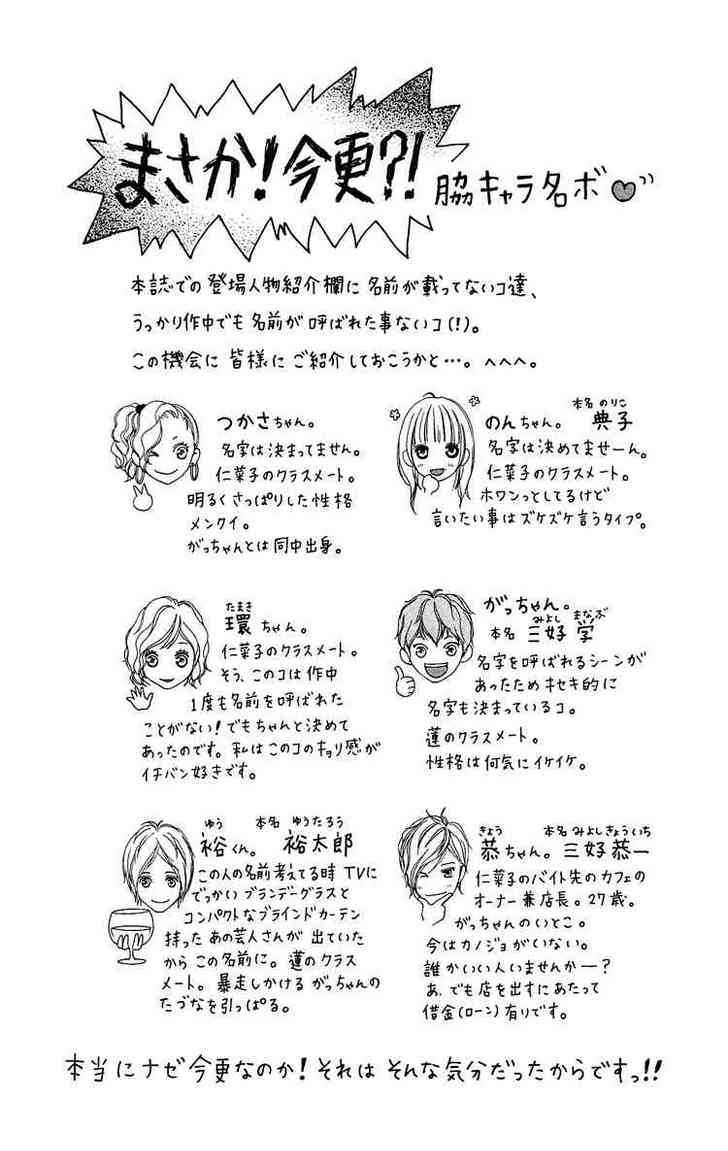 まさか!今更?!
脇キャラ名ボ
本誌での登場人物紹介欄に名前が載ってないコ達、
うっかり作中でも名前が呼ばれた事ないコ(!)。
この機会に皆様にご紹介しておこうかと…。へへへ。
つかさちゃん。
名字は決まってません。
仁菜子のクラスメート。
明るくさっぱりした性格
メンクイ。
がっちゃんとは同中出身。
のんちゃん。本名 典子 のりこ
名字は決めてませーん。
仁菜子のクラスメート。
ホワンっとしてるけど
言いたい事はズケズケ言うタイプ。
たまき
環ちゃん。
仁菜子のクラスメート。
そう、このコは作中
1度も名前を呼ばれた
ことがない!でもちゃんと決めて
あったのです。私はこのコのキョリ感が
イチバン好きです。
がっちゃん。
みよし まなぶ
本名 三好 学
名字を呼ばれるシーンが
あったためキセキ的に
名字も決まっているコ。
蓮のクラスメート。
性格は何気にイケイケ。
ゆう 本名 ゆうたろう
裕くん。裕太郎
この人の名前考えてる時TVに
でっかいブランデーグラスと
コンパクトなブラインドカーテン
持ったあの芸人さんが出ていた
からこの名前に。蓮のクラス
メート。暴走しかけるがっちゃんの
たづなを引っぱる。
きょう 本名 みよしきょういち
恭ちゃん。三好恭一
仁菜子のバイト先のカフェの
オーナー兼店長。27歳。
がっちゃんのいとこ。
今はカノジョがいない。
誰かいい人いませんかー?
あ、でも店を出すにあたって
借金(ローン)有りです。
本当にナゼ今更なのか!それはそんな気分だったからですっ!!